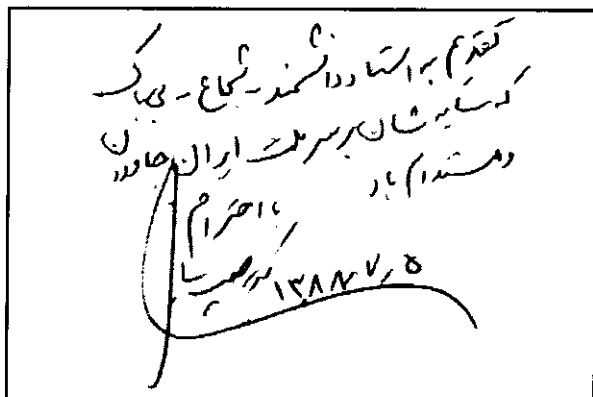 تقدیم به استاد دانشمند - شجاع - بی باک
که سایه شان بر سر ملت ایران جاودان
و مستدام باد
با احترام
۱۳۸۸،۷،۵